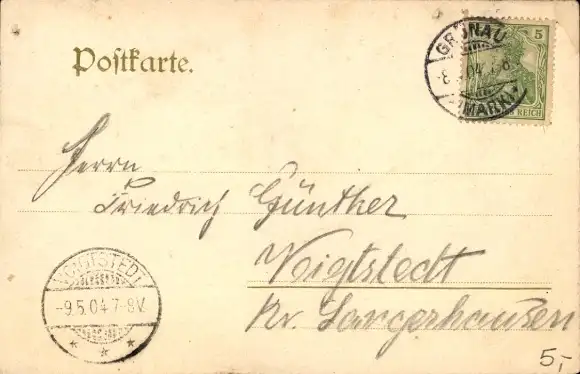 Postkarte.
GRÜNAU
(MARK)
5
REICH
Herrn
Friedrich Günther
Voigtstedt
Kr. Sangerhausen
VOIGTSTEDT
-9.5.04.7-8V.
5,-